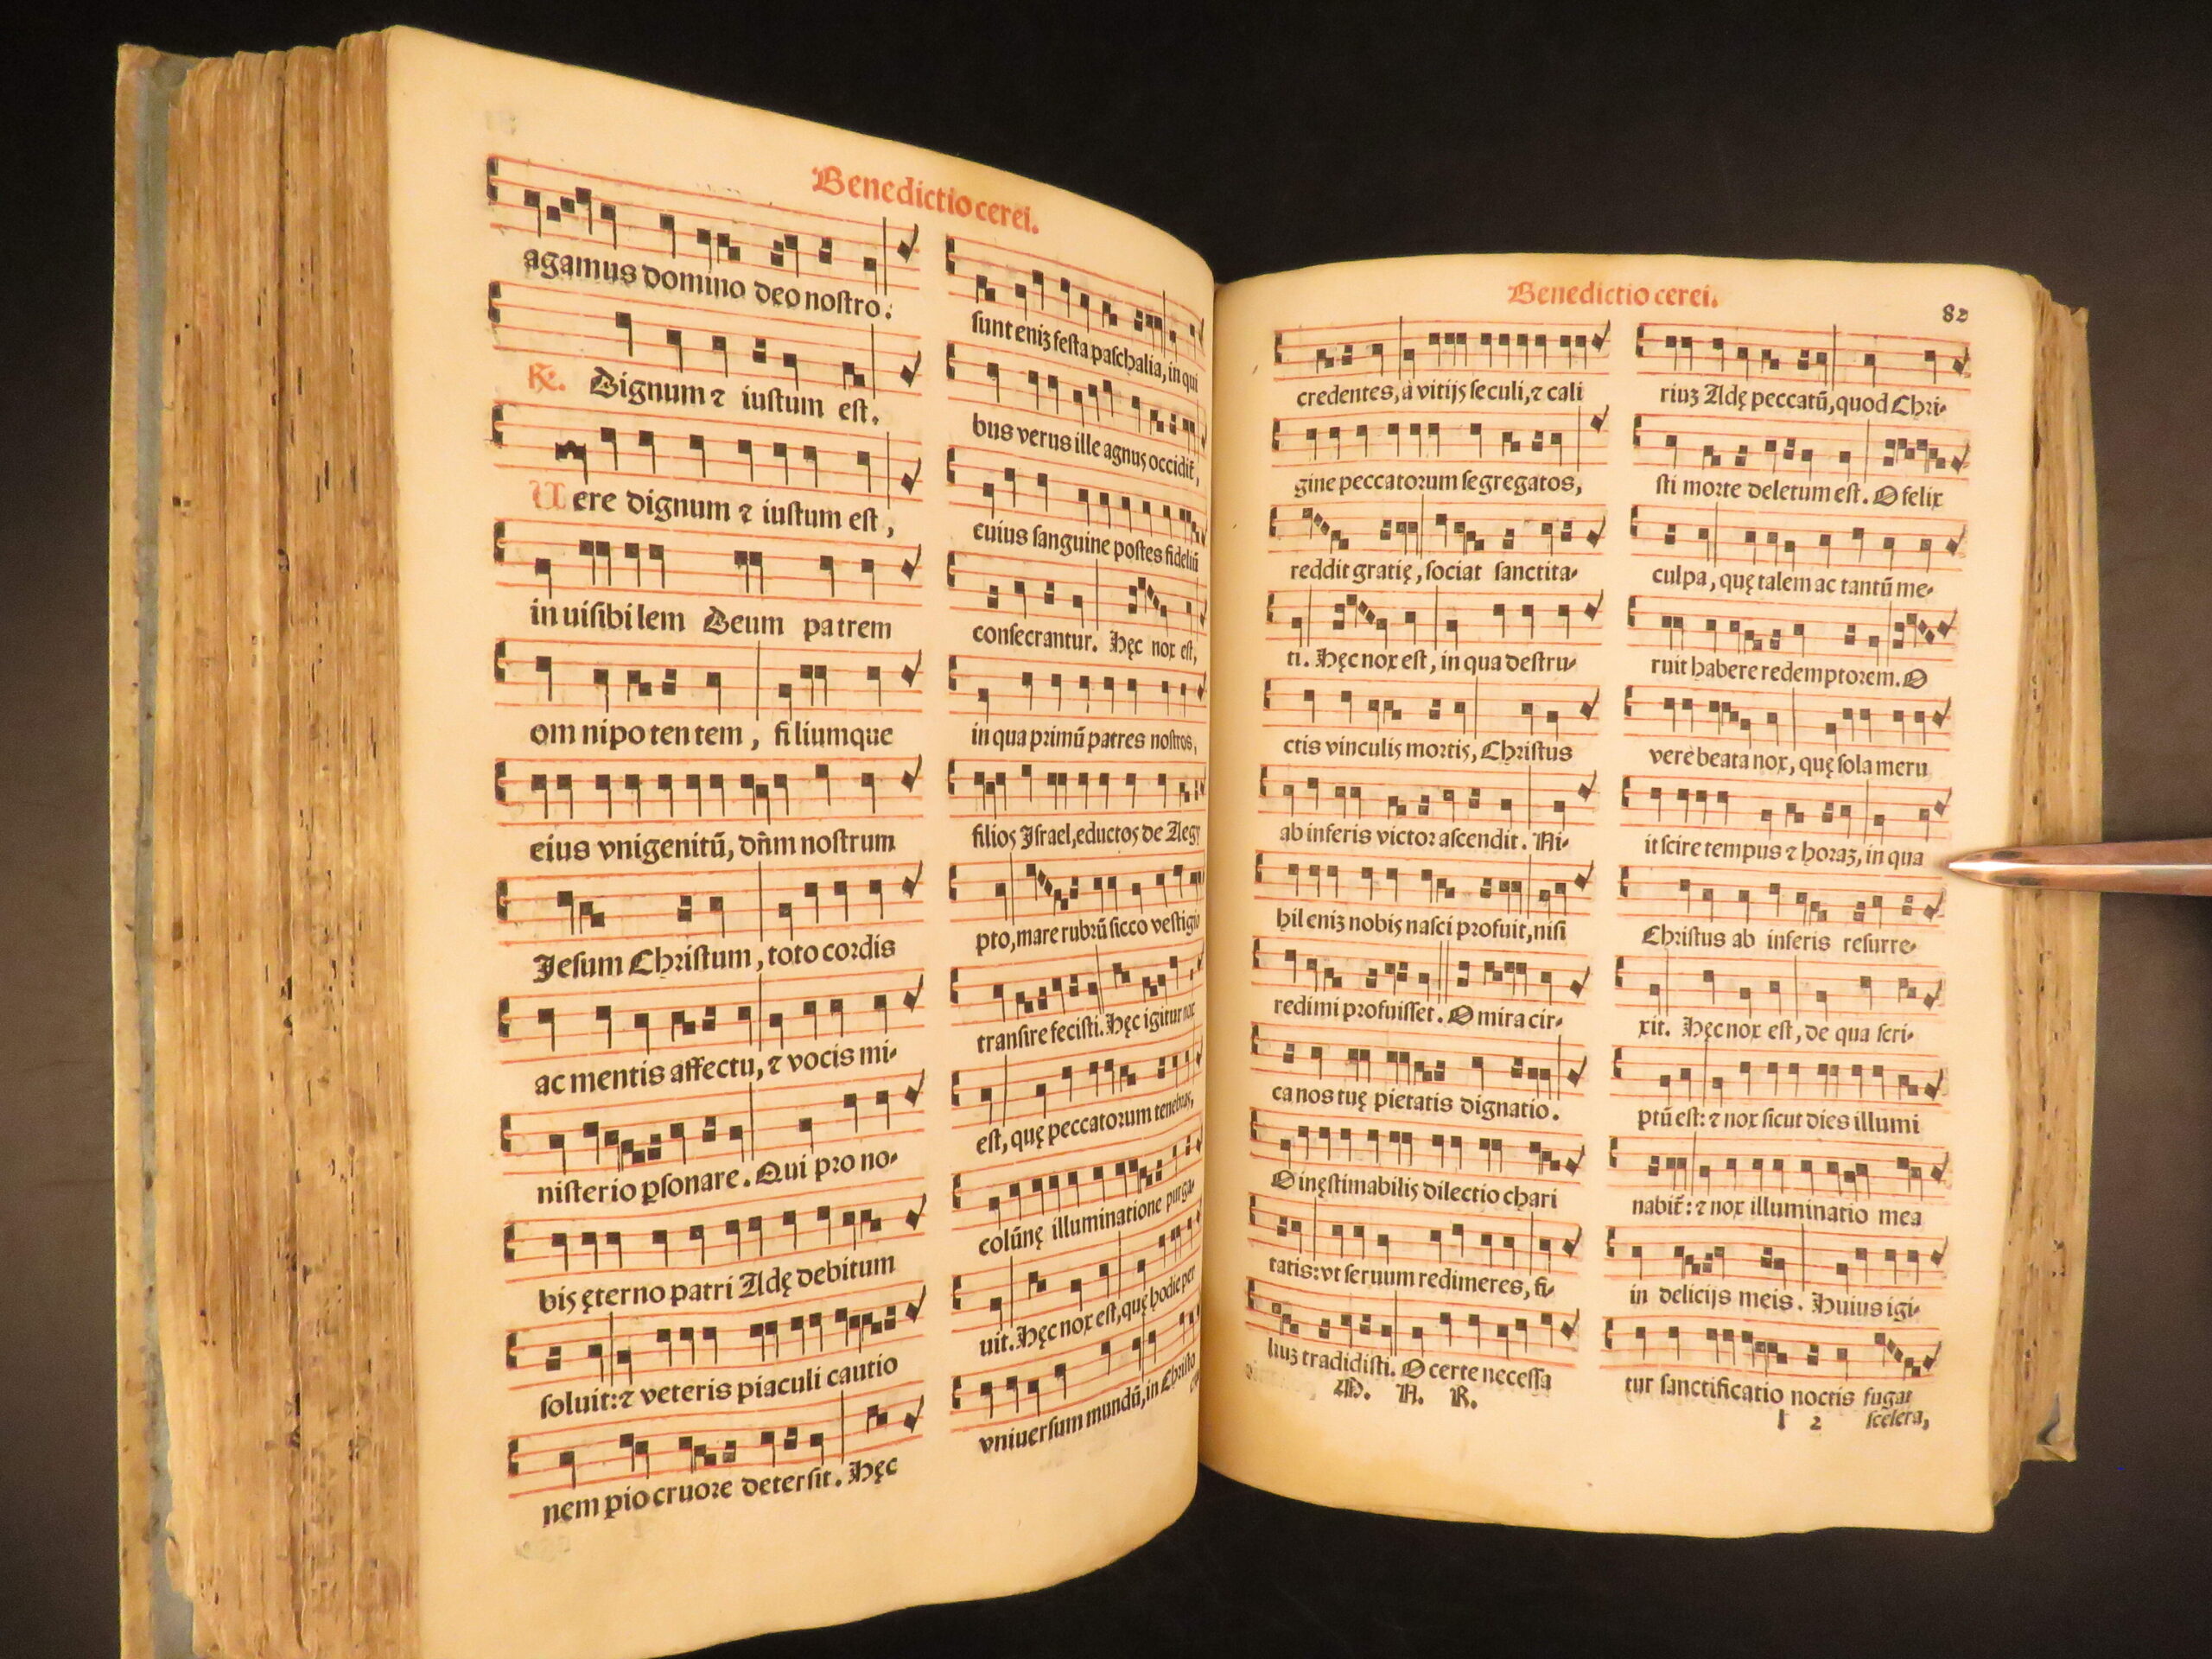 Benedictio cerei.
agamus domino deo nostro.
℟. Dignum ⁊ iustum est.
Uere dignum ⁊ iustum est,
inuisibilem Deum patrem
omnipotentem, filiumque
eius vnigenitū, dn̄m nostrum
Jesum Christum, toto cordis
ac mentis affectu, ⁊ vocis mi-
nisterio ꝑsonare. Qui pro no-
bis ęterno patri Adę debitum
soluit: ⁊ veteris piaculi cautio
nem pio cruore detersit. Hęc
sunt eniz festa paschalia, in qui
bus verus ille agnus occidit̄,
cuius sanguine postes fideliū
consecrantur. Hęc nox est,
in qua primū patres nostros,
filios Israel, eductos de Aegy
pto, mare rubrū sicco vestigio
transire fecisti. Hęc igitur nox
est, quę peccatorum tenebras,
colūnę illuminatione purga-
uit. Hęc nox est, quę hodie per
vniuersum mundū, in Christo
Benedictio cerei.
82
credentes, à vitijs seculi, ⁊ cali
gine peccatorum segregatos,
reddit gratię, sociat sanctita-
ti. Hęc nox est, in qua destru-
ctis vinculis mortis, Christus
ab inferis victor ascendit. Ni-
hil eniz nobis nasci profuit, nisi
redimi profuisset. O mira cir-
ca nos tuę pietatis dignatio.
O inęstimabilis dilectio chari
tatis: vt seruum redimeres, fi-
liuz tradidisti. O certe necessa
M. A. R.
riuz Adę peccatū, quod Chri-
sti morte deletum est. O felix
culpa, quę talem ac tantū me-
ruit habere redemptorem. O
verè beata nox, quę sola meru
it scire tempus ⁊ horaz, in qua
Christus ab inferis resurre-
xit. Hęc nox est, de qua scri-
ptū est: ⁊ nox sicut dies illumi
nabit̄: ⁊ nox illuminatio mea
in delicijs meis. Huius igi-
tur sanctificatio noctis fugat
l 2 scelera,